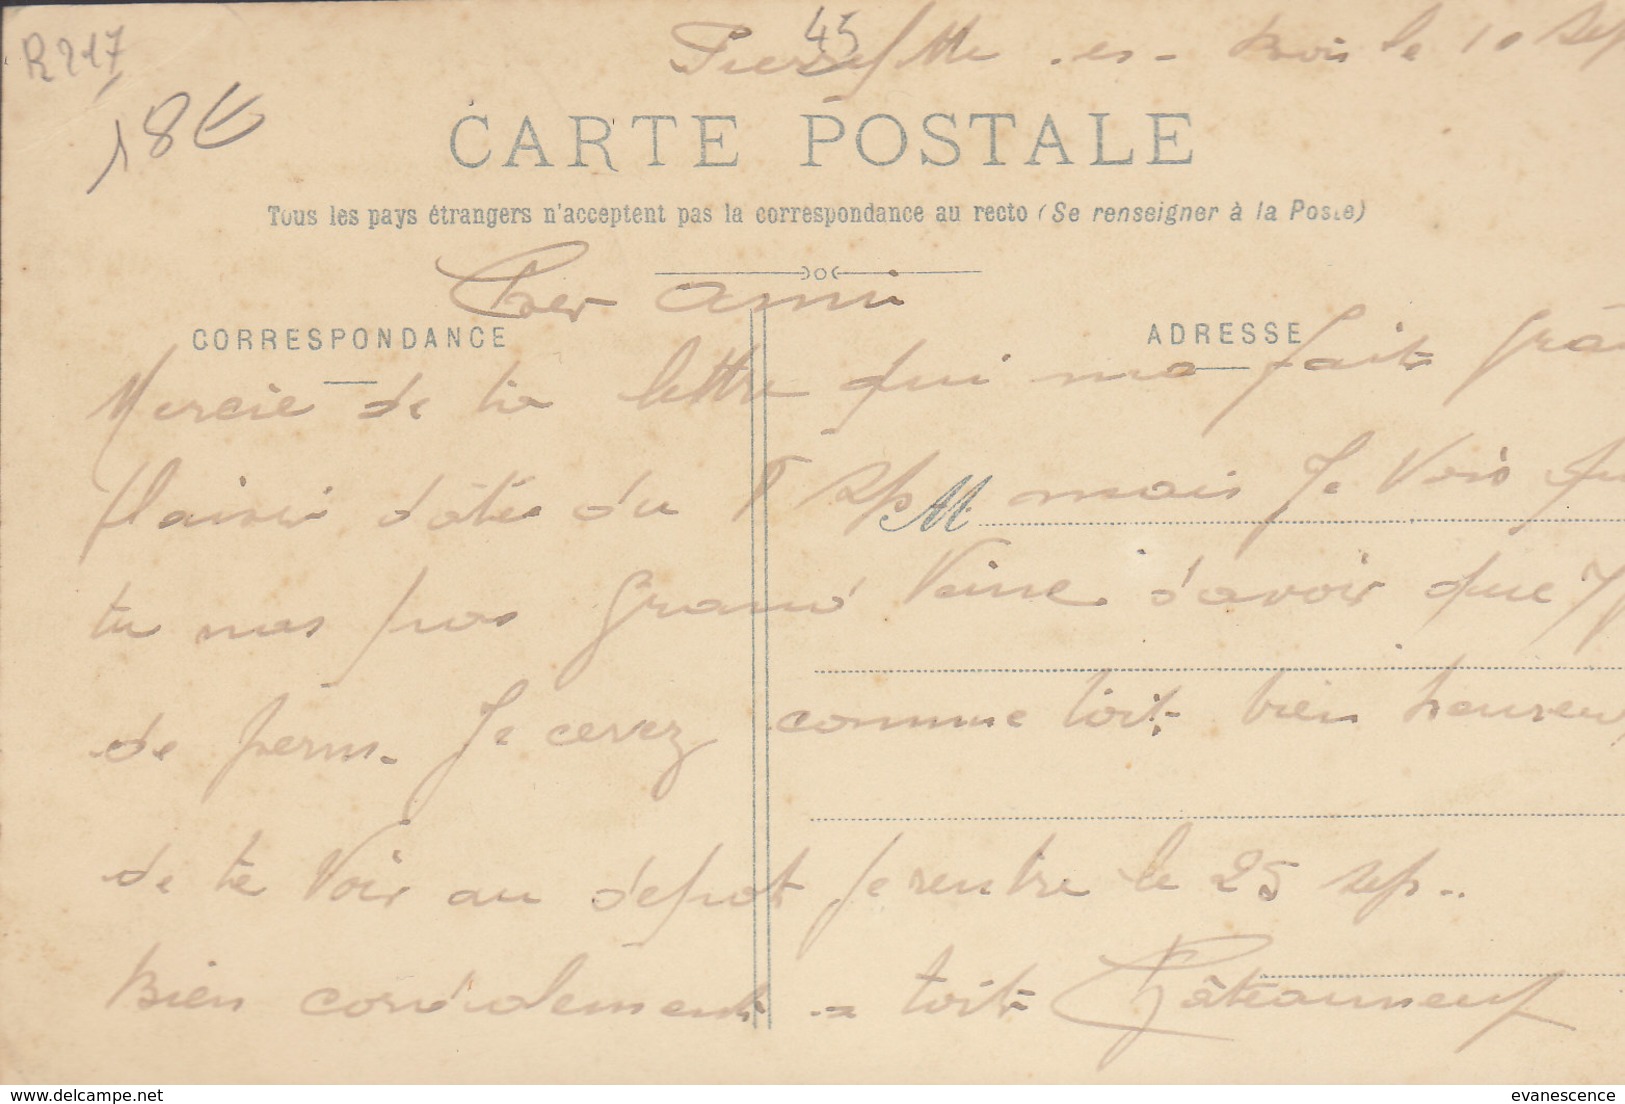 R217
18€
45
Pierrefitte -es- Bois le 10 Sep
CARTE POSTALE
Tous les pays étrangers n'acceptent pas la correspondance au recto (Se renseigner à la Poste)
Cher ami
CORRESPONDANCE
ADRESSE
Mercie de ta lettre qui ma fait
plaisir dâtée du sep mais Je Vois
M
tu nas pas grand Veine d'avoir que
de perm. Je cerez comme toit bien heureux
de te Voir au depot Je rentre le 25 sep..
Bien cordialement a toit Châteauneuf
evanescence